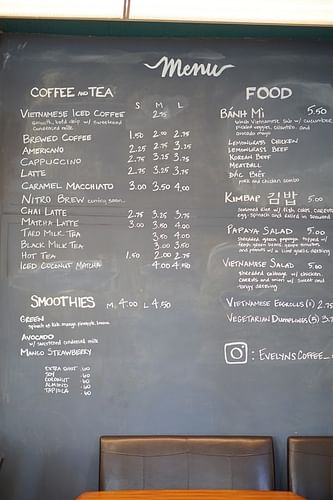 Menu
COFFEE AND TEA
S M L
VIETNAMESE ICED COFFEE 2.75
smooth, bold drip w/ sweetened
condensed milk
BREWED COFFEE 1.50 2.00 2.75
AMERICANO 2.25 2.75 3.25
CAPPUCCINO 2.75 3.25 3.75
LATTE 2.75 3.25 3.75
CARAMEL MACCHIATO 3.00 3.50 4.00
NITRO BREW coming soon
CHAI LATTE 2.75 3.25 3.75
MATCHA LATTE 3.00 3.50 4.00
TARO MILK TEA 3.50 4.00
BLACK MILK TEA 3.00 3.50
HOT TEA 1.50 2.00 2.75
ICED COCONUT MATCHA 4.00 4.50
SMOOTHIES M. 4.00 L 4.50
GREEN
spinach or kale, mango, pineapple, banana
AVOCADO
w/ sweetened condensed milk
MANGO STRAWBERRY
EXTRA SHOT .60
SOY .60
COCONUT .60
ALMOND .60
TAPIOCA .60
FOOD
BÁNH MÌ 5.50
Vietnamese sub w/ cucumber,
pickled veggies, cilantro, and
avocado mayo
LEMONGRASS CHICKEN
LEMONGRASS BEEF
KOREAN BEEF
MEATBALL
ĐẶC BIỆT
pork and chicken combo
KIMBAP 김밥 5.00
seasoned rice w/ fish cakes, carrots,
egg, spinach and rolled in seaweed
PAPAYA SALAD 5.00
shredded green papaya, topped w/
VIETNAMESE SALAD 5.00
shredded cabbage w/ chicken,
carrots and mint w/ sweet and
tangy dressing
VIETNAMESE EGGROLLS (1) 2.75
VEGETARIAN DUMPLINGS (5) 3.
: EVELYNSCOFFEE_